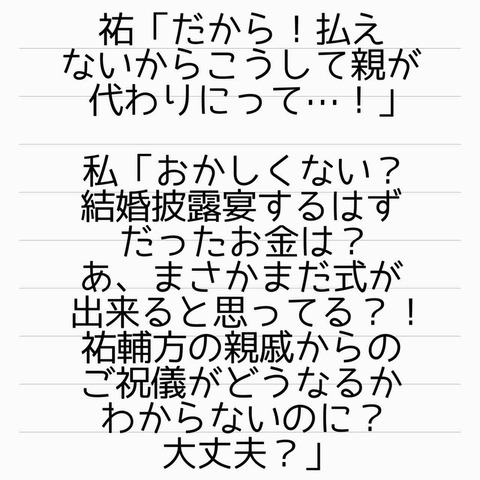 祐「だから！払え
ないからこうして親が
代わりにって…！」
私「おかしくない？
結婚披露宴するはず
だったお金は？
あ、まさかまだ式が
出来ると思ってる？！
祐輔方の親戚からの
ご祝儀がどうなるか
わからないのに？
大丈夫？」